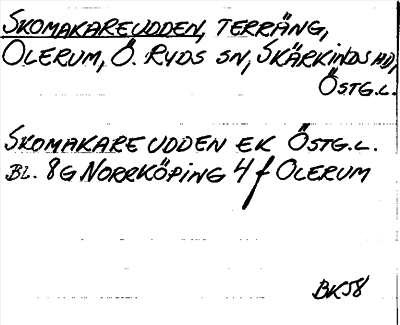 SKOMAKAREUDDEN, TERRÄNG,
OLERUM, Ö. RYDS SN, SKÄRKINDS HD,
ÖSTG.L.
SKOMAKAREUDDEN EK ÖSTG.L.
BL. 8G NORRKÖPING 4 f OLERUM
BK58